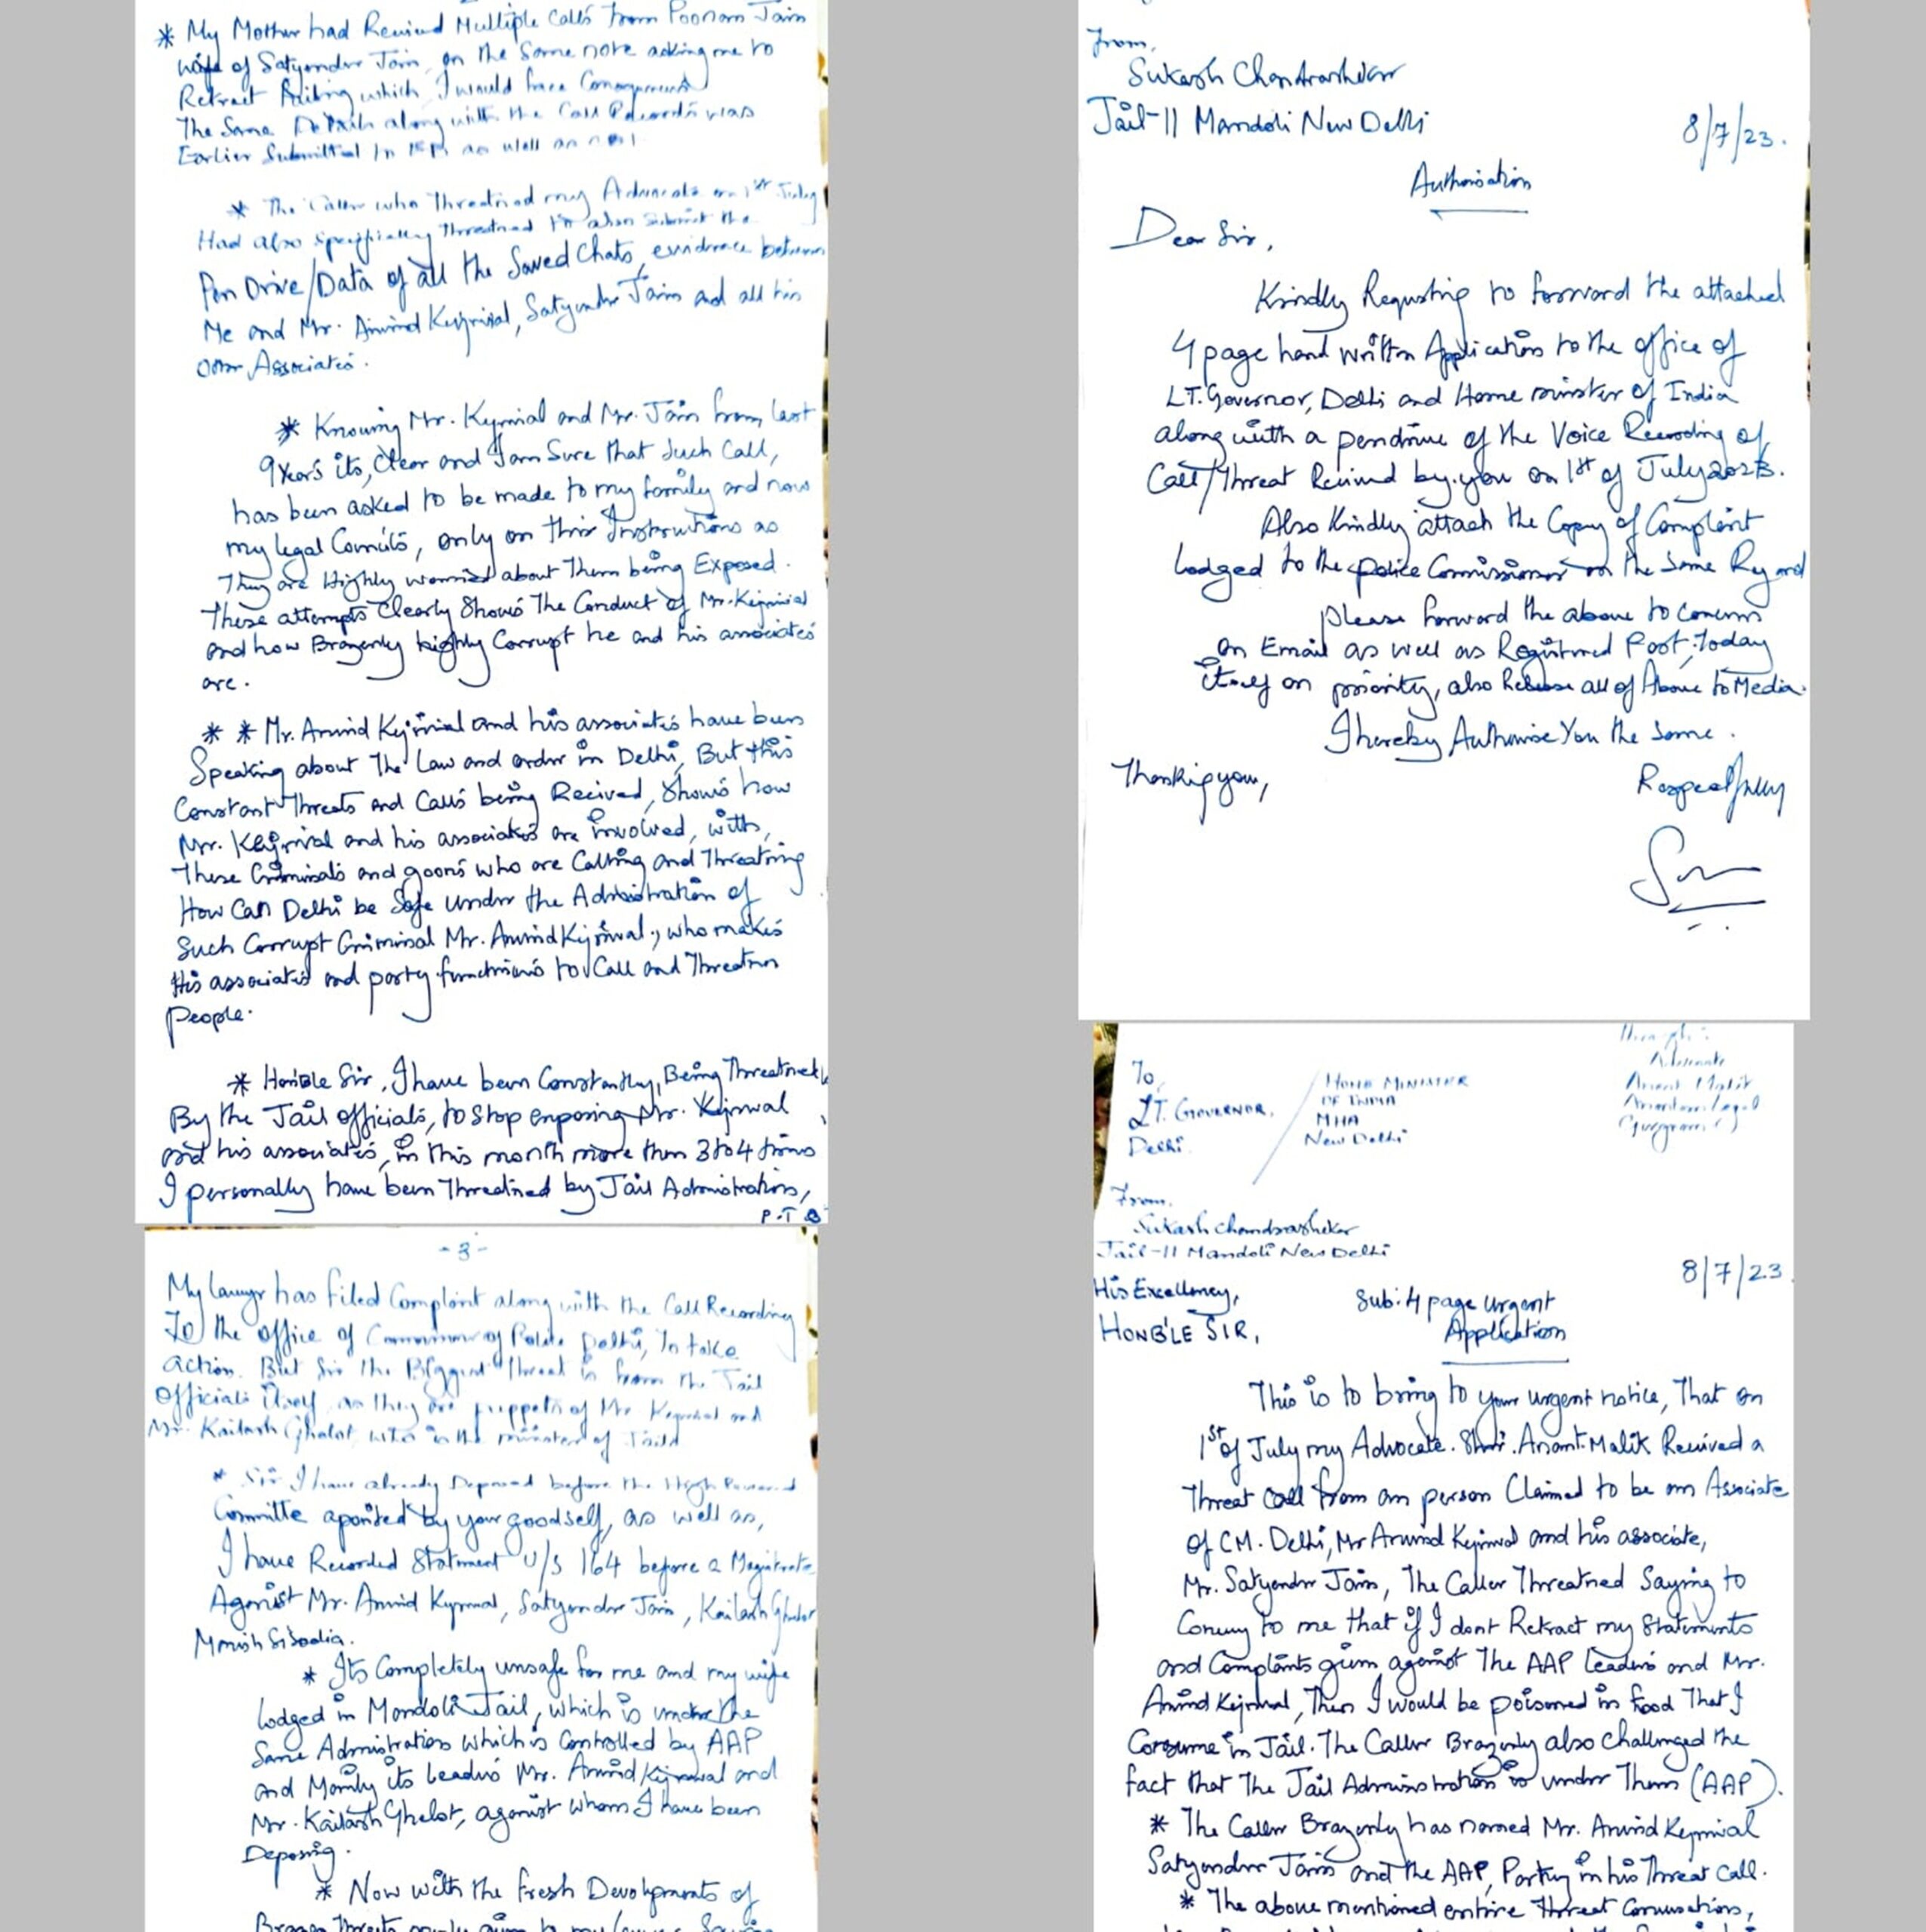 * My Mother had Recived Multiple Calls from Poonam Jain
wife of Satyendar Jain, on the same note asking me to
Retract failing which I would face Consequences
The Same Details along with the Call Records was
Earlier Submitted in as well as
* The Caller who Threatned my Advocate on 1st July
Had also specifically threatned to also submit the
Pen Drive/Data of all the Saved Chats, evidence between
Me and Mr. Arvind Kejrival, Satyendar Jain and all his
other Associates.
* Knowing Mr. Kejrival and Mr. Jain from last
9 Years its, Clear and I am Sure that Such Call,
has been asked to be made to my family and now
my legal Councils, only on their Instructions as
They are Highly worried about Them being Exposed.
These attempts Clearly Shows The Conduct of Mr. Kejrival
and how Brazenly highly Corrupt he and his associates
are.
* * Mr. Arvind Kejrival and his associates have been
Speaking about The Law and order in Delhi, But this
Constant Threats and Calls being Recived, Shows how
Mr. Kejrival and his associates are involved, with,
These Criminals and goons who are Calling and Threatning
How Can Delhi be Safe under the Administration of
Such Corrupt Criminal Mr. Arvind Kejrival, who makes
His associates and party functions to Call and Threaten
People.
* Hon'ble Sir, I have been Constantly, Being Threatned
By the Jail officials, to stop exposing Mr. Kejrival
and his associates, in this month more than 3 to 4 times
I personally have been Threatned by Jail Administration,
P.T.O
- 3 -
My lawyer has filed Complaint along with the Call Recording
To the office of Commissioner of Police Delhi, to take
action. But Sir the Biggest threat is from the Jail
officials itself, as they are puppets of Mr Kejrival and
Mr. Kailash Ghelot, who is the minister of Jails
* Sir I have already Deposed before the High Powered
Committe aponted by your goodself, as well as,
I have Recorded Statment U/S 164 before a Magistrate
Against Mr. Arvind Kejrival, Satyendar Jain, Kailash Ghelot
Manish Sisodia.
* Its Completely unsafe for me and my wife
lodged in Mandoli Jail, which is under the
Same Administration which is Controlled by AAP
and Mainly its leaders Mr. Arvind Kejrival and
Mr. Kailash Ghelot, against whom I have been
Deposing.
* Now with the Fresh Devolpments of
From,
Sukash Chandrashekar
Jail-11 Mandoli New Delhi
8/7/23.
Authorisation
Dear Sir,
Kindly Requsting to forward the attached
4 page hand written Application to the office of
LT. Governor, Delhi and Home minister of India
along with a pendrive of the Voice Recording of
Call/threat Recived by you on 1st of July 2023.
Also Kindly attach the Copy of Complaint
lodged to the police Commissioner on the Same Regard
please forward the above to concern
on Email as well as Registered Post, today
itself on priority, also Release all of Above to Media.
I hereby Authorise You the Same.
Thanking you,
Respectfully
To,
LT. GOVERNOR,
Delhi.
HOME MINISTER
OF INDIA
MHA
New Delhi
Through:
Advocate
Anant Malik
Gurgram
From,
Sukash Chandrashekar
Jail-11 Mandoli New Delhi
8/7/23.
His Excellency,
HONB'LE SIR,
Sub: 4 page urgent
Application
This is to bring to your urgent notice, That on
1st of July my Advocate. Shri. Anant Malik Recived a
Threat call from an person Claimed to be an Associate
of CM. Delhi, Mr Arvind Kejrival and his associate,
Mr. Satyendar Jain, The Caller Threatned Saying to
Convey to me that if I dont Retract my Statements
and Complants given against The AAP leaders and Mr.
Arvind Kejrival, Then I would be poisoned in food That I
Consume in Jail. The Caller Brazenly also challenged the
fact that The Jail Administration is under Them (AAP).
* The Caller Brazenly has named Mr. Arvind Kejrival
Satyendar Jain and The AAP, Party in his Threat call.
* The above mentioned entire Threat Conversation,